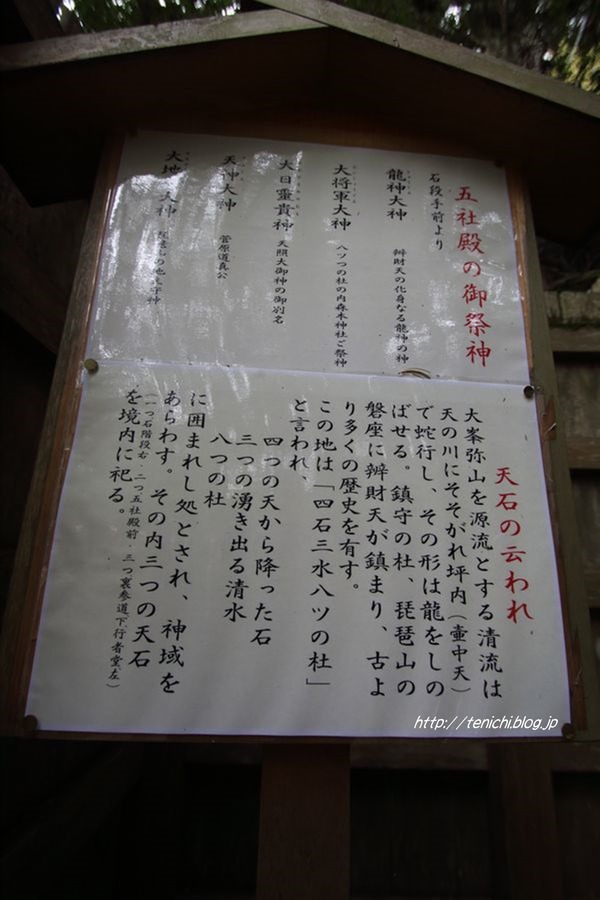 五社殿の御祭神
石段手前より
龍神大神　辨財天の化身なる龍神の神
大将軍大神　八ツの杜の内森本神社ご祭神
大日靈貴神　天照大御神の御別名
天神大神　菅原道真公
大地大神
天石の云われ
大峯弥山を源流とする清流は
天の川にそそがれ坪内（壷中天）
で蛇行し、その形は龍をしの
ばせる。鎮守の杜、琵琶山の
磐座に辨財天が鎮まり、古よ
り多くの歴史を有す。
この地は「四石三水八ツの杜」
と言われ、
四つの天から降った石
三つの湧き出る清水
八つの杜
に囲まれし処とされ、神域を
あらわす。その内三つの天石
（一つ石階段右・二つ五社殿前　三つ裏参道下行者堂左）
を境内に祀る。
http://tenichi.blog.jp